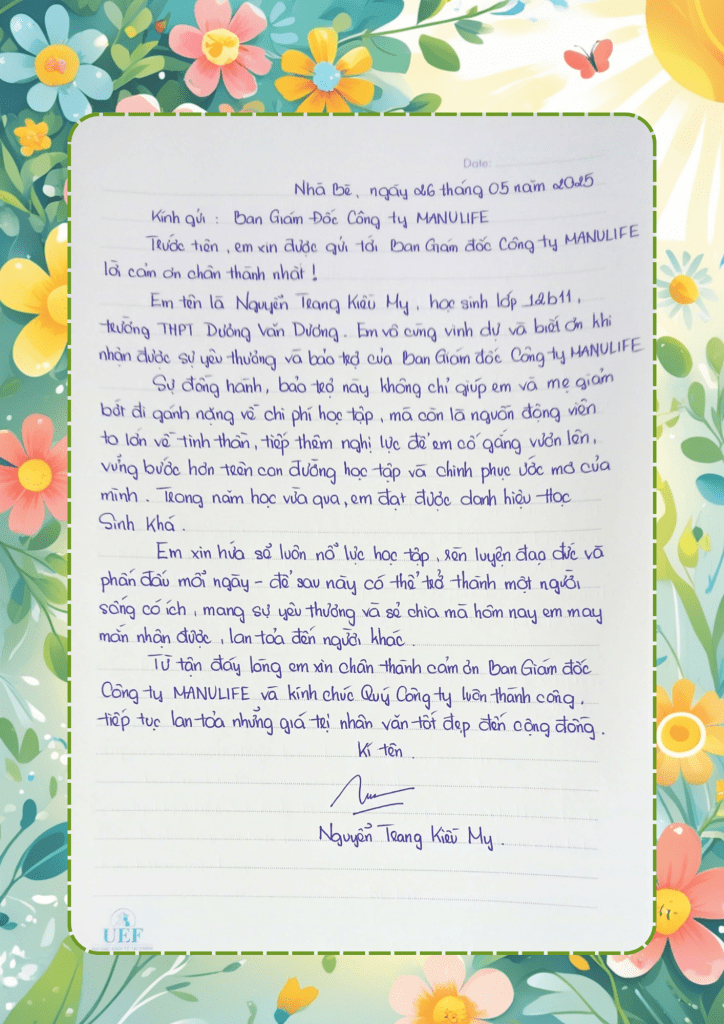 Date:
Nhà Bè, ngày 26 tháng 05 năm 2025
Kính gửi : Ban Giám Đốc Công ty MANULIFE
Trước tiên, em xin được gửi tới Ban Giám đốc Công ty MANULIFE
lời cảm ơn chân thành nhất !
Em tên là Nguyễn Trang Kiều My, học sinh lớp 12b11,
trường THPT Dương Văn Dương. Em vô cùng vinh dự và biết ơn khi
nhận được sự yêu thương và bảo trợ của Ban Giám đốc Công ty MANULIFE
Sự đồng hành, bảo trợ này không chỉ giúp em và mẹ giảm
bớt đi gánh nặng về chi phí học tập, mà còn là nguồn động viên
to lớn về tinh thần, tiếp thêm nghị lực để em cố gắng vươn lên,
vững bước hơn trên con đường học tập và chinh phục ước mơ của
mình. Trong năm học vừa qua, em đạt được danh hiệu Học
Sinh Khá.
Em xin hứa sẽ luôn nổ lực học tập, rèn luyện đạo đức và
phấn đấu mỗi ngày - để sau này có thể trở thành một người
sống có ích, mang sự yêu thương và sẻ chia mà hôm nay em may
mắn nhận được, lan toả đến người khác.
Từ tận đáy lòng em xin chân thành cảm ơn Ban Giám đốc
Công ty MANULIFE và kính chúc Quý Công ty luôn thành công,
tiếp tục lan toả những giá trị nhân văn tốt đẹp đến cộng đồng.
Kí tên.
Nguyễn Trang Kiều My.
UEF